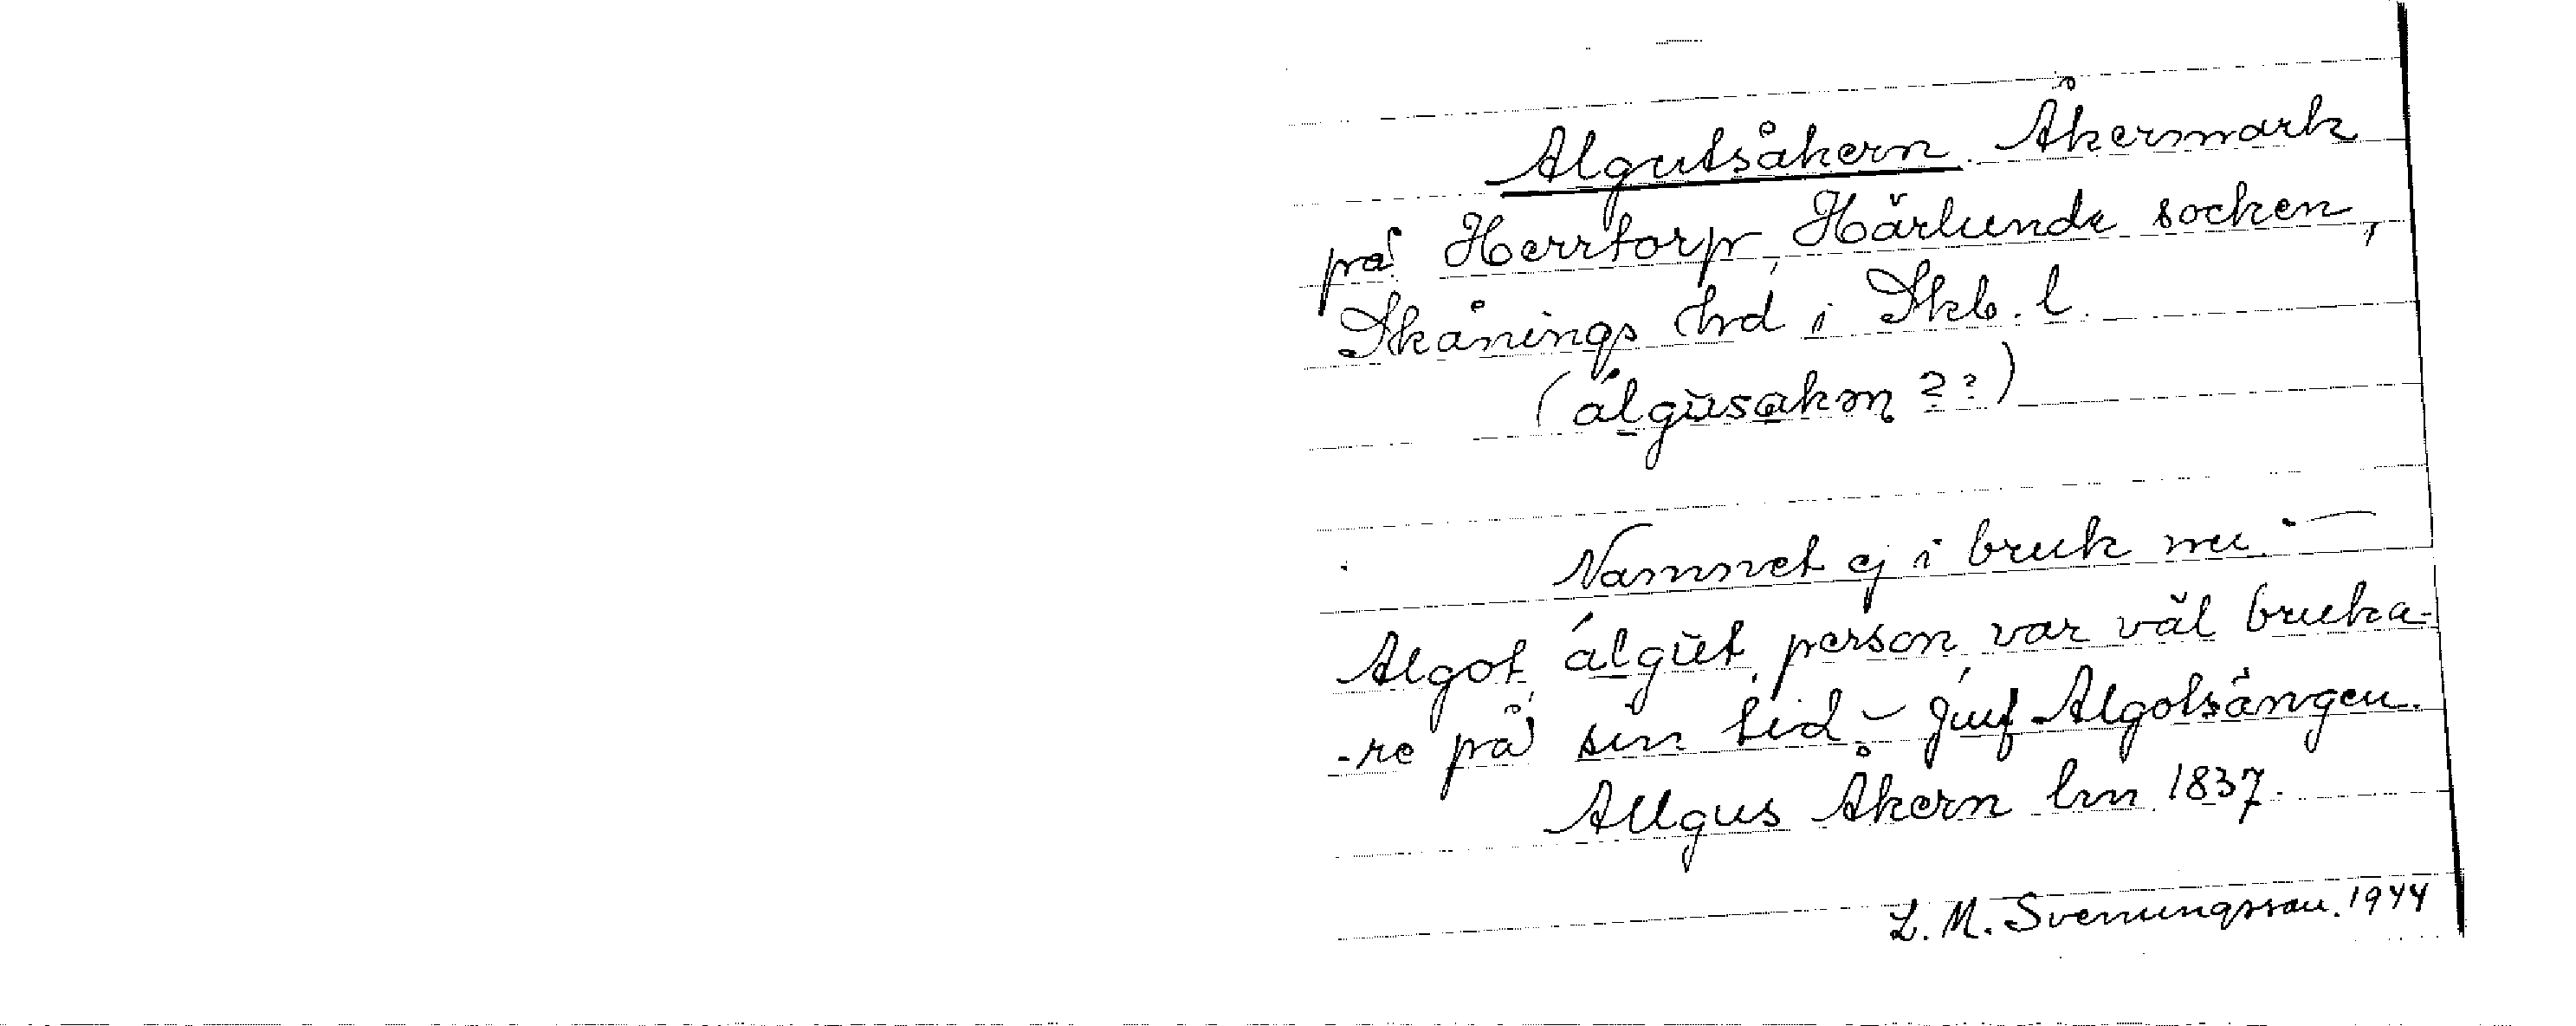 Algutsåkern. Åkermark
på Herrtorp, Härlunda socken,
Skånings hrd i Skb. l.
(álgusakṇ ??)
Namnet ej i bruk nu. —
Algot, álgut, person, var väl bruka-
-re på sin tid. – Jmf Algotsängen.
Allgus Åkern lm 1837.
L. M. Svenungsson. 1944